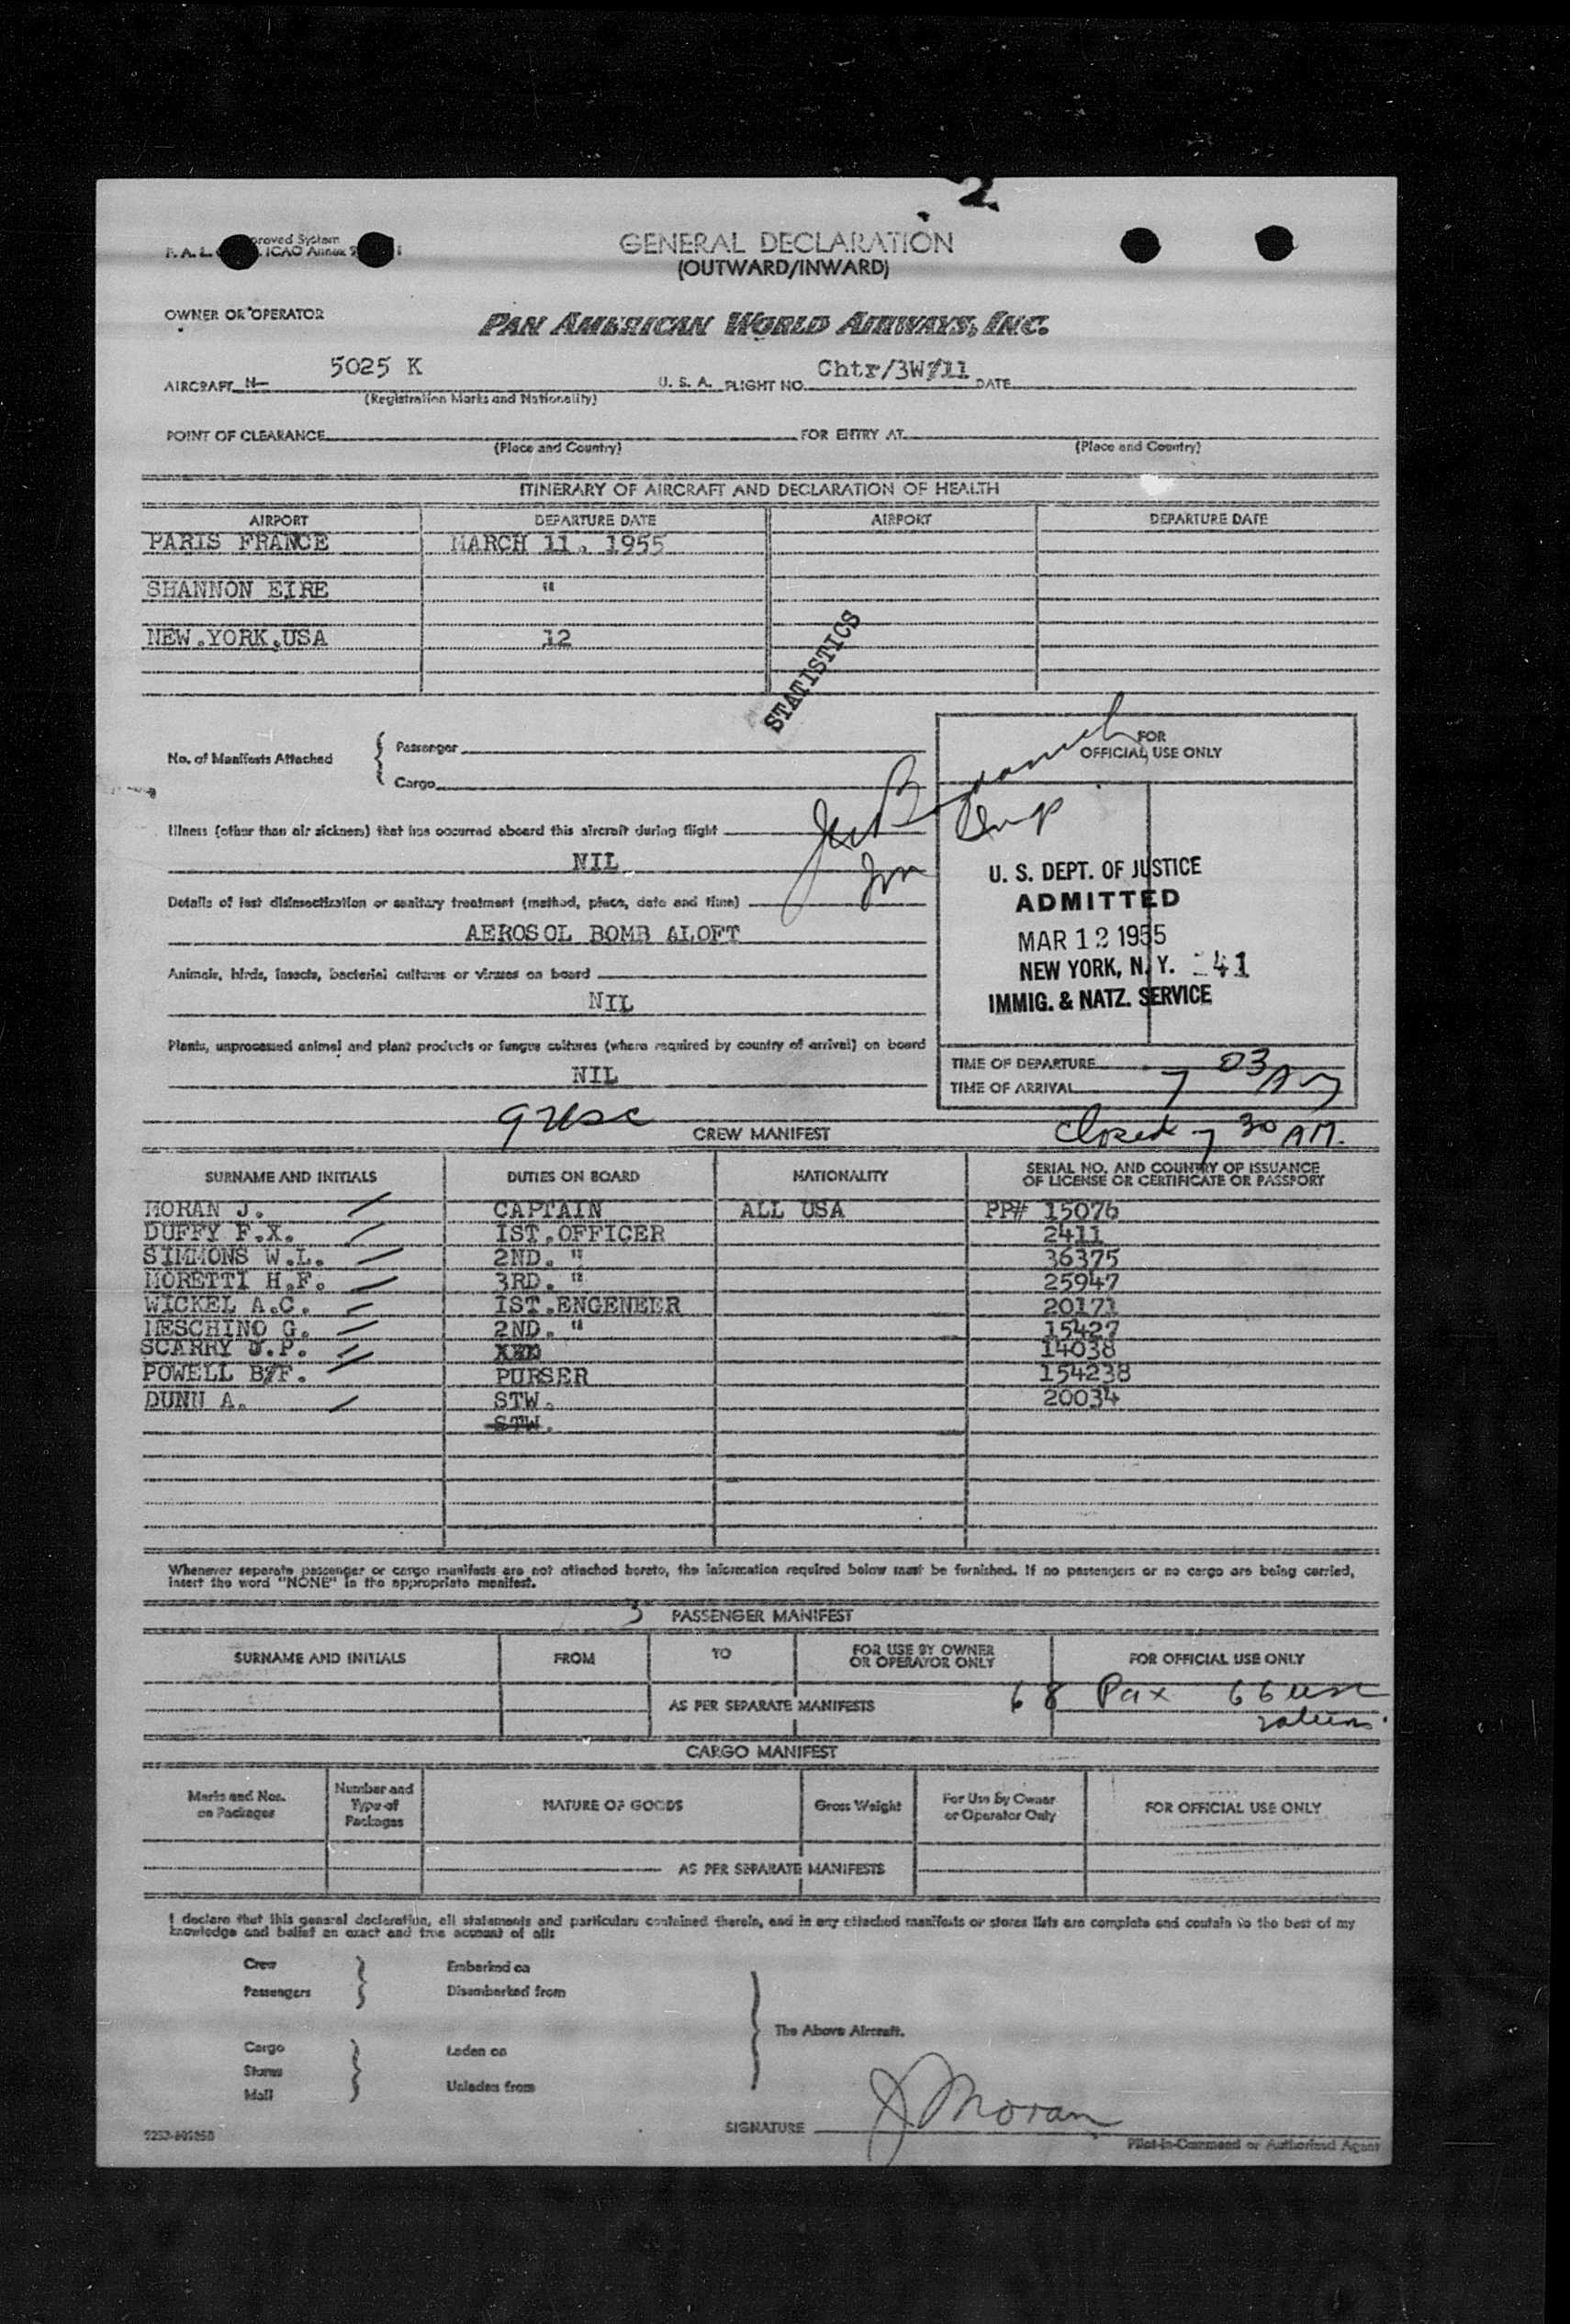 2.
proved System
F. A. L. ICAO Annex 9
GENERAL DECLARATION
(OUTWARD/INWARD)
OWNER OR OPERATOR
PAN AMERICAN WORLD AIRWAYS, INC.
AIRCRAFT N- 5025 K U. S. A. FLIGHT NO. Chtr/3W/11 DATE
(Registration Marks and Nationality)
POINT OF CLEARANCE FOR ENTRY AT
(Place and Country) (Place and Country)
ITINERARY OF AIRCRAFT AND DECLARATION OF HEALTH
AIRPORT DEPARTURE DATE AIRPORT DEPARTURE DATE
PARIS FRANCE MARCH 11, 1955
SHANNON EIRE "
NEW.YORK,USA 12
STATISTICS
No. of Manifests Attached { Passenger
Cargo
FOR
OFFICIAL USE ONLY
Illness (other than air sickness) that has occurred aboard this aircraft during flight
NIL
Details of last disinsectization or sanitary treatment (method, place, date and time)
AEROSOL BOMB ALOFT
Animals, birds, insects, bacterial cultures or viruses on board
NIL
Plants, unprocessed animal and plant products or fungus cultures (where required by country of arrival) on board
NIL
U. S. DEPT. OF JUSTICE
ADMITTED
MAR 12 1955
NEW YORK, N. Y. 41
IMMIG. & NATZ. SERVICE
TIME OF DEPARTURE
TIME OF ARRIVAL 7 03 AM
9 usc
Closed 7 30 AM.
CREW MANIFEST
SURNAME AND INITIALS DUTIES ON BOARD NATIONALITY SERIAL NO. AND COUNTRY OF ISSUANCE
OF LICENSE OR CERTIFICATE OR PASSPORT
MORAN J. CAPTAIN ALL USA PP# 15076
DUFFY F.X. IST.OFFICER 2411
SIMMONS W.L. 2ND. " 36375
MORETTI H.F. 3RD. " 25947
WICKEL A.C. IST.ENGENEER 20171
MESCHINO G. 2ND. " 15427
SCARRY J.P. 14038
POWELL B/F. PURSER 154238
DUNN A. STW. 20034
STW.
Whenever separate passenger or cargo manifests are not attached hereto, the information required below must be furnished. If no passengers or no cargo are being carried,
insert the word "NONE" in the appropriate manifest.
3 PASSENGER MANIFEST
SURNAME AND INITIALS FROM TO FOR USE BY OWNER
OR OPERATOR ONLY FOR OFFICIAL USE ONLY
AS PER SEPARATE MANIFESTS 68 Pax 66 usc
2 aliens.
CARGO MANIFEST
Marks and Nos.
on Packages Number and
Type of
Packages NATURE OF GOODS Gross Weight For Use by Owner
or Operator Only FOR OFFICIAL USE ONLY
AS PER SEPARATE MANIFESTS
I declare that this general declaration, all statements and particulars contained therein, and in any attached manifests or stores lists are complete and contain to the best of my
knowledge and belief an exact and true account of all:
Crew Embarked on
Passengers Disembarked from
The Above Aircraft.
Cargo Laden on
Stores
Mail Unladen from
SIGNATURE J Moran
Pilot-in-Command or Authorized Agent